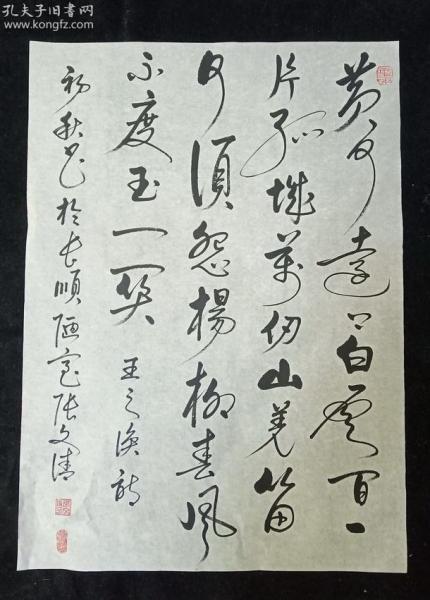 孔夫子旧书网
www.kongfz.com
黄河遠上白雲間一
片孤城萬仞山羌笛
何須怨楊柳春風
不度玉門关 王之涣詩
初秋书於長順陋室张文清